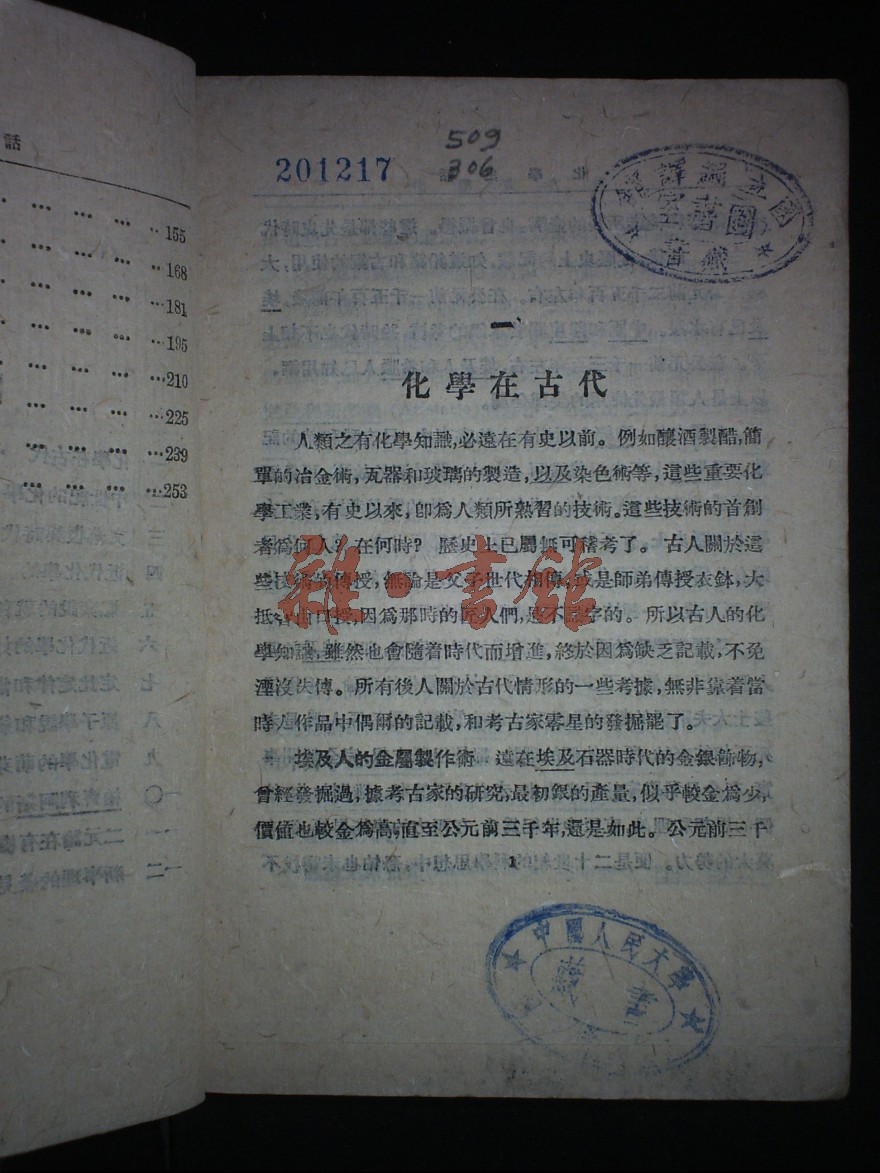 話
155
168
181
195
210
225
239
253
201217
509
306
國立編譯館
圖書室
藏書
一
化學在古代
人類之有化學知識,必遠在有史以前。例如釀酒製醋,簡
單的冶金術,瓦器和玻璃的製造,以及染色術等,這些重要化
學工業,有史以來,卽爲人類所熟習的技術。這些技術的首創
者爲何人?在何時?歷史上已屬無可稽考了。古人關於這
些技術的傳授,無論是父子世代相傳,或是師弟傳授衣鉢,大
抵皆由口授,因爲那時的匠人們,是不識字的。所以古人的化
學知識,雖然也會隨着時代而增進,終於因爲缺乏記載,不免
湮沒失傳。所有後人關於古代情形的一些考據,無非靠着當
時人作品中偶爾的記載,和考古家零星的發掘罷了。
埃及人的金屬製作術 遠在埃及石器時代的金銀飾物,
曾經發掘過,據考古家的研究,最初銀的產量,似乎較金爲少,
價值也較金爲高,直至公元前三千年,還是如此。公元前三千
1
雜·書館
中國人民大學